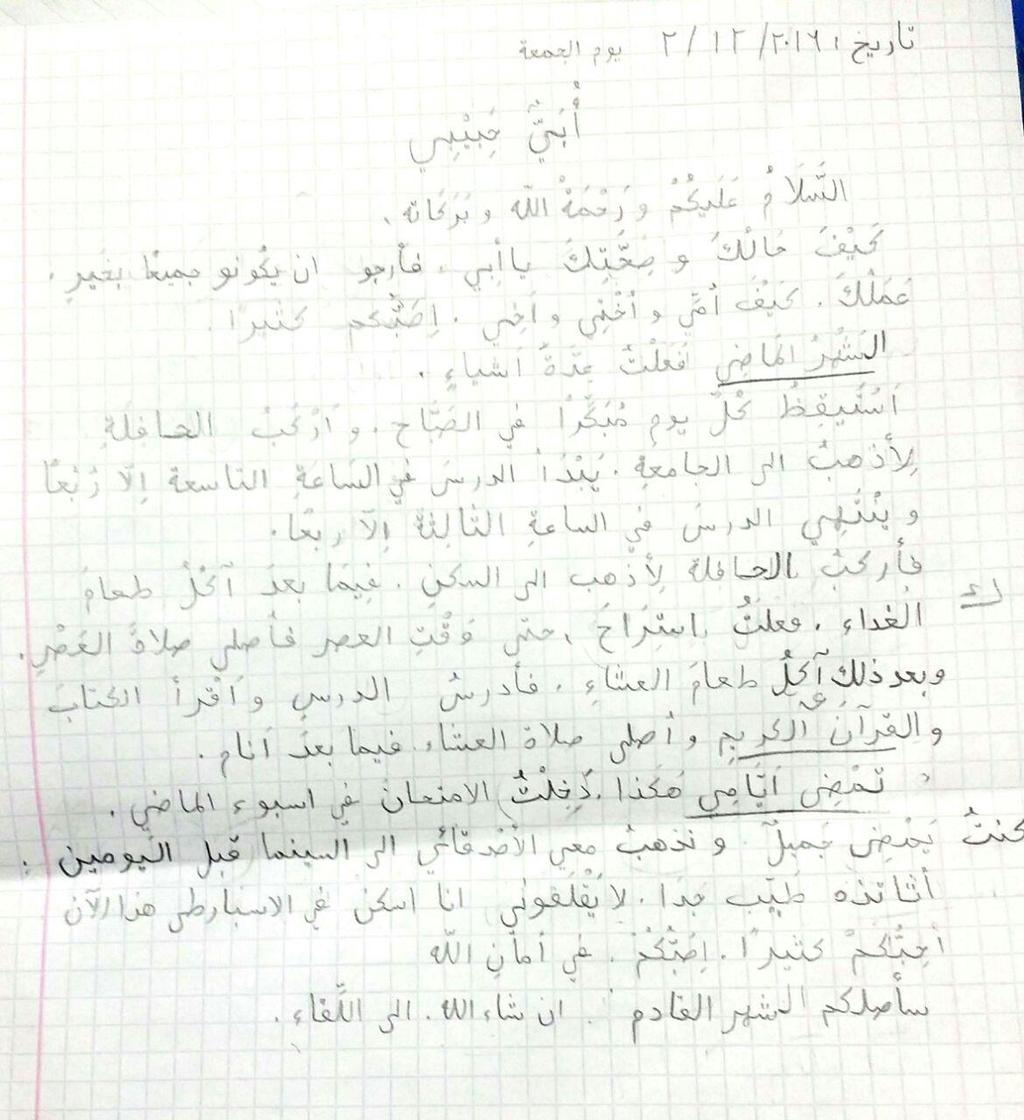 تاريخ : ٢٠١٦/ ١٢ / ٢ يوم الجمعة
أُبَيَّ حَبِيْبِي
السَّلَامُ عَلَيكُمْ وَرَحْمَةُ اللّه وبَرَكَاته .
كَيْفَ حَالُكَ و صِحَّتِكَ يا أبي . فأرجو ان يكُونو جميعًا بخيرٍ .
عَمَلُكَ . كَيْفَ أُمّي و أُخْتِي و أَخِي . اِحِبُّكم كثيرًا
الشَهْرُ الماضِي فَعَلْتُ عِدّةُ اَشياءٍ .
اَسْتَيقِظُ كُلَّ يوم مُبَكَّرًا في الصَبَّاح . و اَرْكَبُ الحافلةِ
لِأَذهبُ الى الجامعةِ . يَبْدَأ الدرسَ في السَاعةِ التاسعة اِلّا رُبْعًا
و يَنْتَهِي الدرسَ في الساعةِ الثّالِثة اِلّا ربعًا .
فأركبُ الحافلة لِأذهب الى السكنِ . فِيمَا بعدَ آكُلُ طعامَ
الغداء . فعلتُ اِستِرَاحَ . حتى وَقْتِ العصر فأصلي صلاةَ العَصْرِ .
وبعد ذلك آكُلُ طعامَ العشاءِ . فأدرسُ الدرسِ و اَقْرأ الكتابَ
والقرآنَ الكريم و أصلي صلاة العشاء فيما بعدَ اَنام .
تَمْضِ اَيَّامِي هَكذا . دَخِلْتُ الامتحان في اسبوء الماضي .
كنتُ يَمْضِ جَمِيلٌ و نذهبُ مَعِي الأَصْدقائي الى السينما قبل اليومين .
أساتذه طَيّب جَدا . لا يُقْلِقوني انا اسكن في الاسبارطى هذا الآن
اُحِبُّكمْ كثيرًا . اِحِبُّكُمْ . في أمانِ اللّه
سأصلكم الشهر القادم . ان شاء الله . الى اللِّقاءِ .